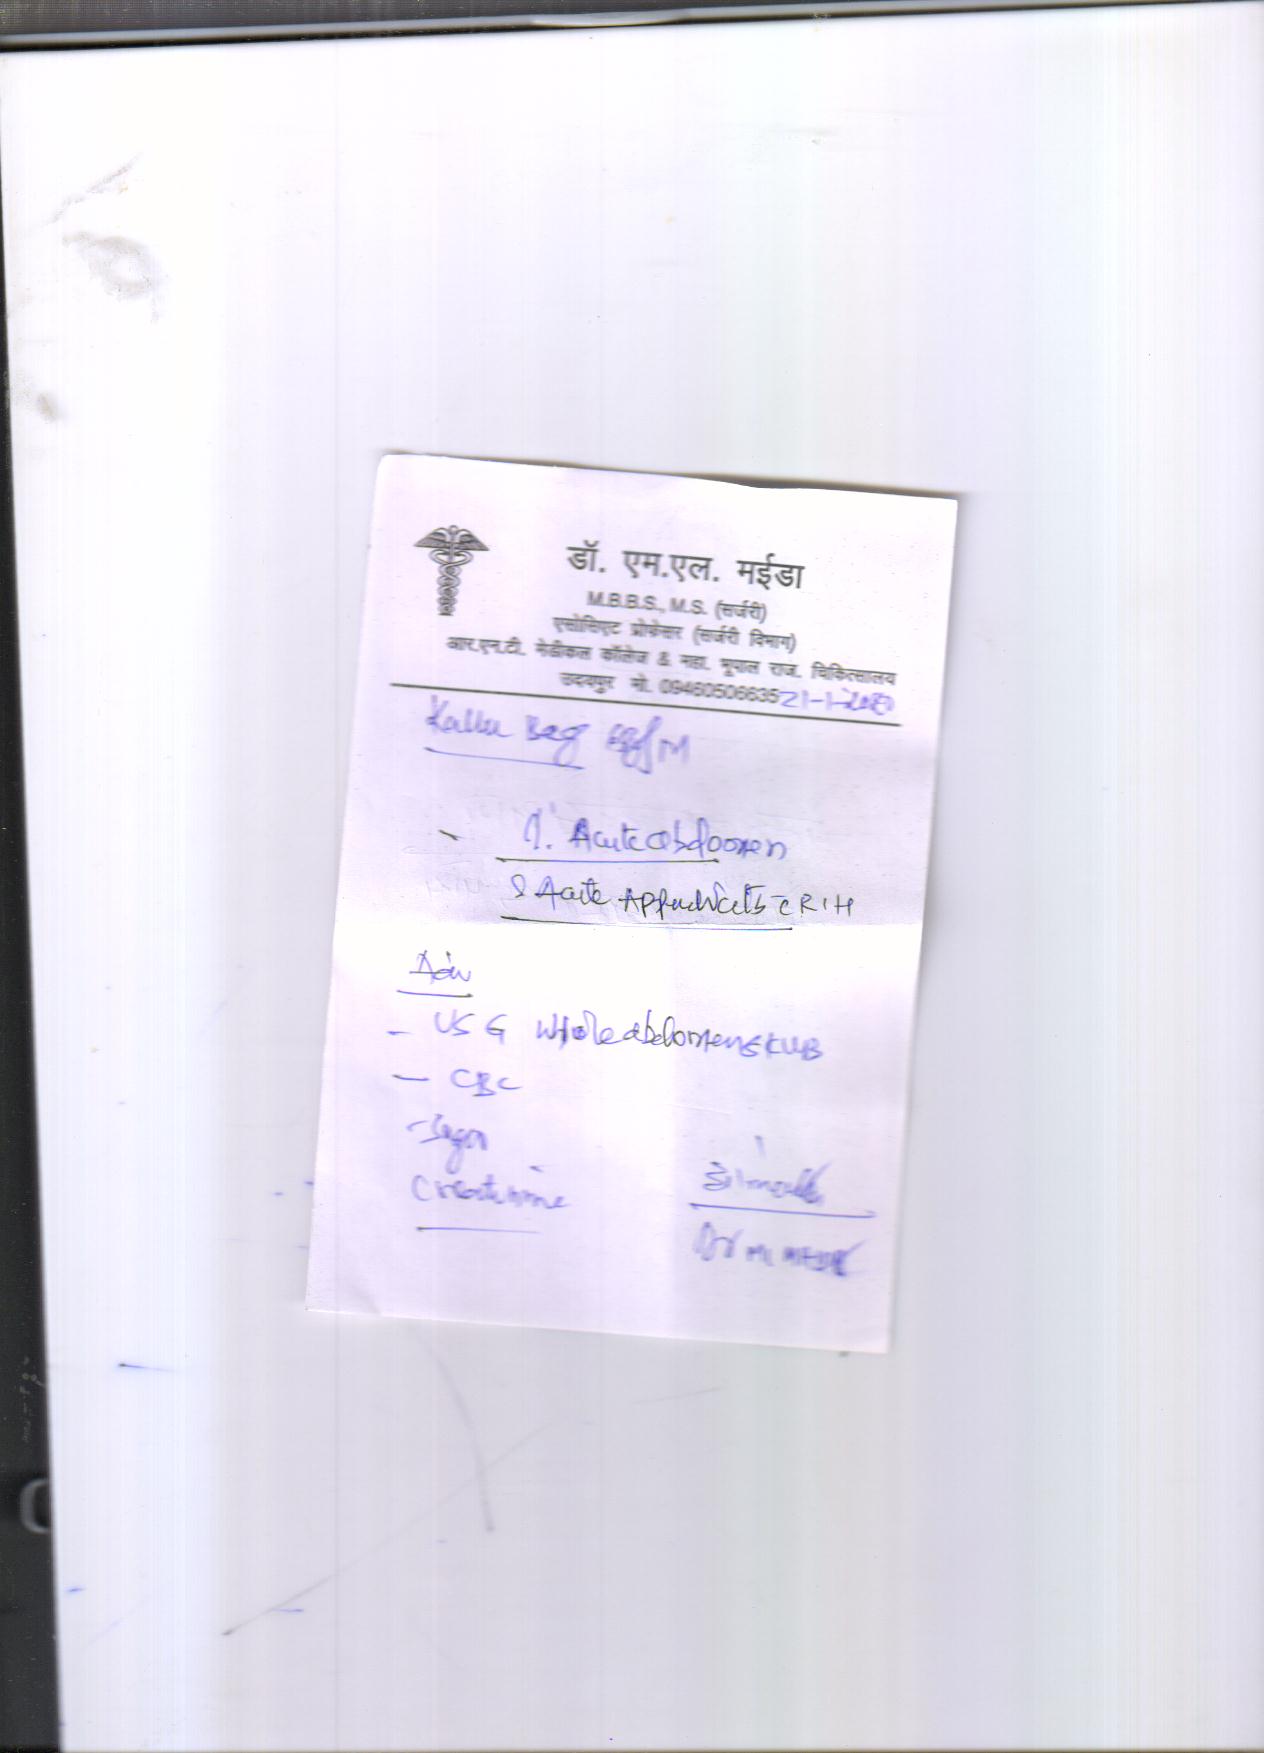 डॉ. एम.एल. मईडा
M.B.B.S., M.S. (सर्जरी)
एसोसिएट प्रोफेसर (सर्जरी विभाग)
आर.एन.टी. मेडीकल कॉलेज & महा. भूपाल राज. चिकित्सालय
उदयपुर मो. 09460506635 21-1-2020
Kallu Beg M
Acute abdomen
? Acute Appendicitis c RIH
Adv
- USG whole abdomen & KUB
- CBC
- Sugar
Creatinine
Dr ML